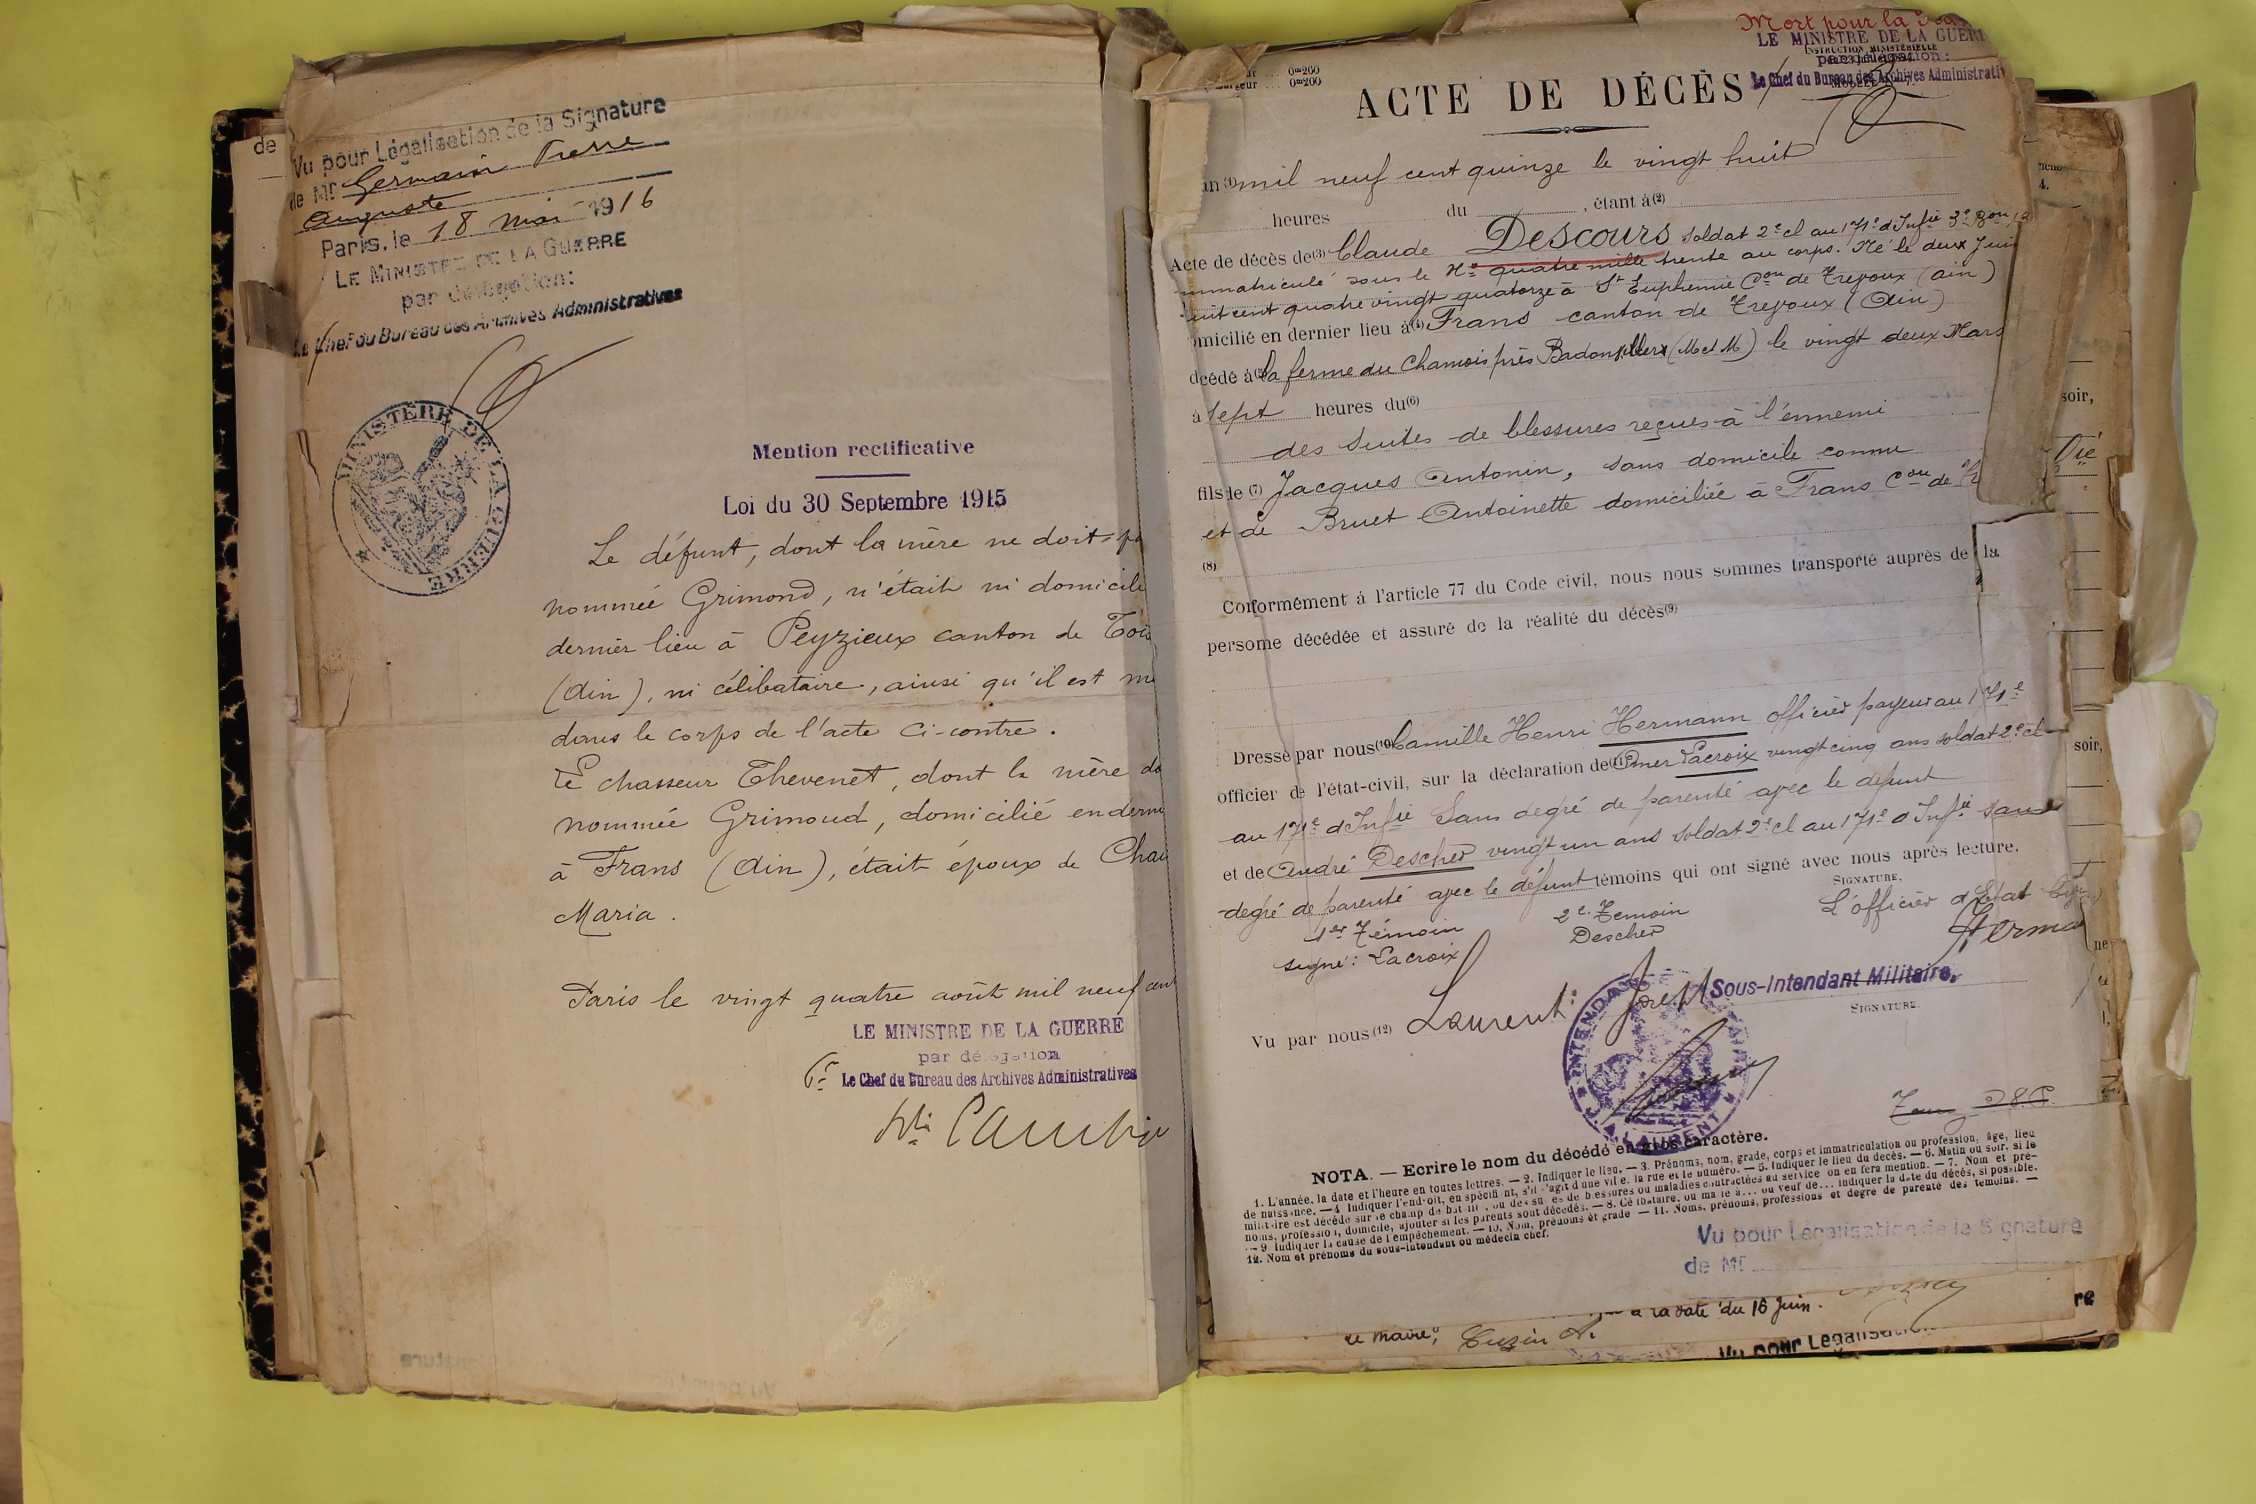 de
Vu pour Légalisation de la Signature
de Mr Germain Pierre
Auguste
Paris, le 18 Mai 1916
LE MINISTRE DE LA GUERRE
par délégation:
Le Chef du Bureau des Archives Administratives
MINISTÈRE DE LA GUERRE
Mention rectificative
Loi du 30 Septembre 1915
Le défunt, dont la mère ne doit
nommée Grimond, n'était ni domicil
dernier lieu à Peyzieux canton de
(Ain), ni célibataire, ainsi qu'il est
dans le corps de l'acte ci-contre.
Le chasseur Thevenet, dont la mère
nommée Grimoud, domicilié en
à Frans (Ain), était époux de
Maria.
Paris le vingt quatre août mil neuf cent
LE MINISTRE DE LA GUERRE
par délégation
Le Chef du Bureau des Archives Administratives
Mort pour la
LE MINISTRE DE LA GUERR
INSTRUCTION MINISTÉRIELLE
par délégation:
Le Chef du Bureau des Archives Administrativ
0m260
0m200
ACTE DE DÉCÈS
an (1) mil neuf cent quinze le vingt huit
heures du , étant à (2)
Acte de décès de (3) Claude Descours soldat 2e cl au 171e d'Infie 3e Bon
immatriculé sous le No quatre mille trente au corps. Né le deux Juin
huit cent quatre vingt quatorze à St Euphemie Con de Trevoux (Ain)
omicilié en dernier lieu à (4) Frans canton de Trevoux (Ain)
décédé à (5) la ferme du Chamois près Badonvillers (M et M) le vingt deux Mars
à sept heures du (6)
des suites de blessures reçues à l'ennemi
fils de (7) Jacques Antonin, sans domicile connu
et de Bruet Antoinette domiciliée à Frans Con de
(8)
Conformément à l'article 77 du Code civil, nous nous sommes transporté auprès de la
persome décédée et assuré de la réalité du décès (9)
Dressé par nous (10) Camille Henri Hermann officier payeur au 171e
officier de l'état-civil, sur la déclaration de (11) Omer Lacroix vingt cinq ans soldat 2e cl
au 171e d'Infie Sans degré de parenté avec le défunt
et de André Descher vingt un ans soldat 2e cl au 171e d'Infie sans
degré de parenté avec le défunt témoins qui ont signé avec nous après lecture.
SIGNATURE,
1er Témoin
2e Temoin
L'officier d'Etat
signé: Lacroix
Descher
Herma
Vu par nous (12) Laurent Joseph Sous-Intendant Militaire.
SIGNATURE
NOTA. — Ecrire le nom du décédé en gros caractère.
1. L'année, la date et l'heure en toutes lettres. — 2. Indiquer le lieu. — 3. Prénoms, nom, grade, corps et immatriculation ou profession, âge, lieu
de naissance. — 4. Indiquer l'endroit, en spécifiant, s'il s'agit d'une ville, la rue et le numéro. — 5. Indiquer le lieu du décès. — 6. Matin ou soir, si le
militaire est décédé sur le champ de bataille, ou des suites de blessures ou maladies contractées au service on en fera mention. — 7. Nom et pré-
noms, profession, domicile, ajouter si les parents sont décédés. — 8. Célibataire, ou marié à... ou veuf de... indiquer la date du décès, si possible.
— 9. Indiquer la cause de l'empêchement. — 10. Nom, prénoms et grade — 11. Noms, prénoms, professions et degré de parenté des témoins. —
12. Nom et prénoms du sous-intendant ou médecin chef.
Vu pour Légalisation de la Signature
de Mr
à la date du 16 Juin.
le maire, Cuzin
Vu pour Légalisation
soir,
soir,
ne
re